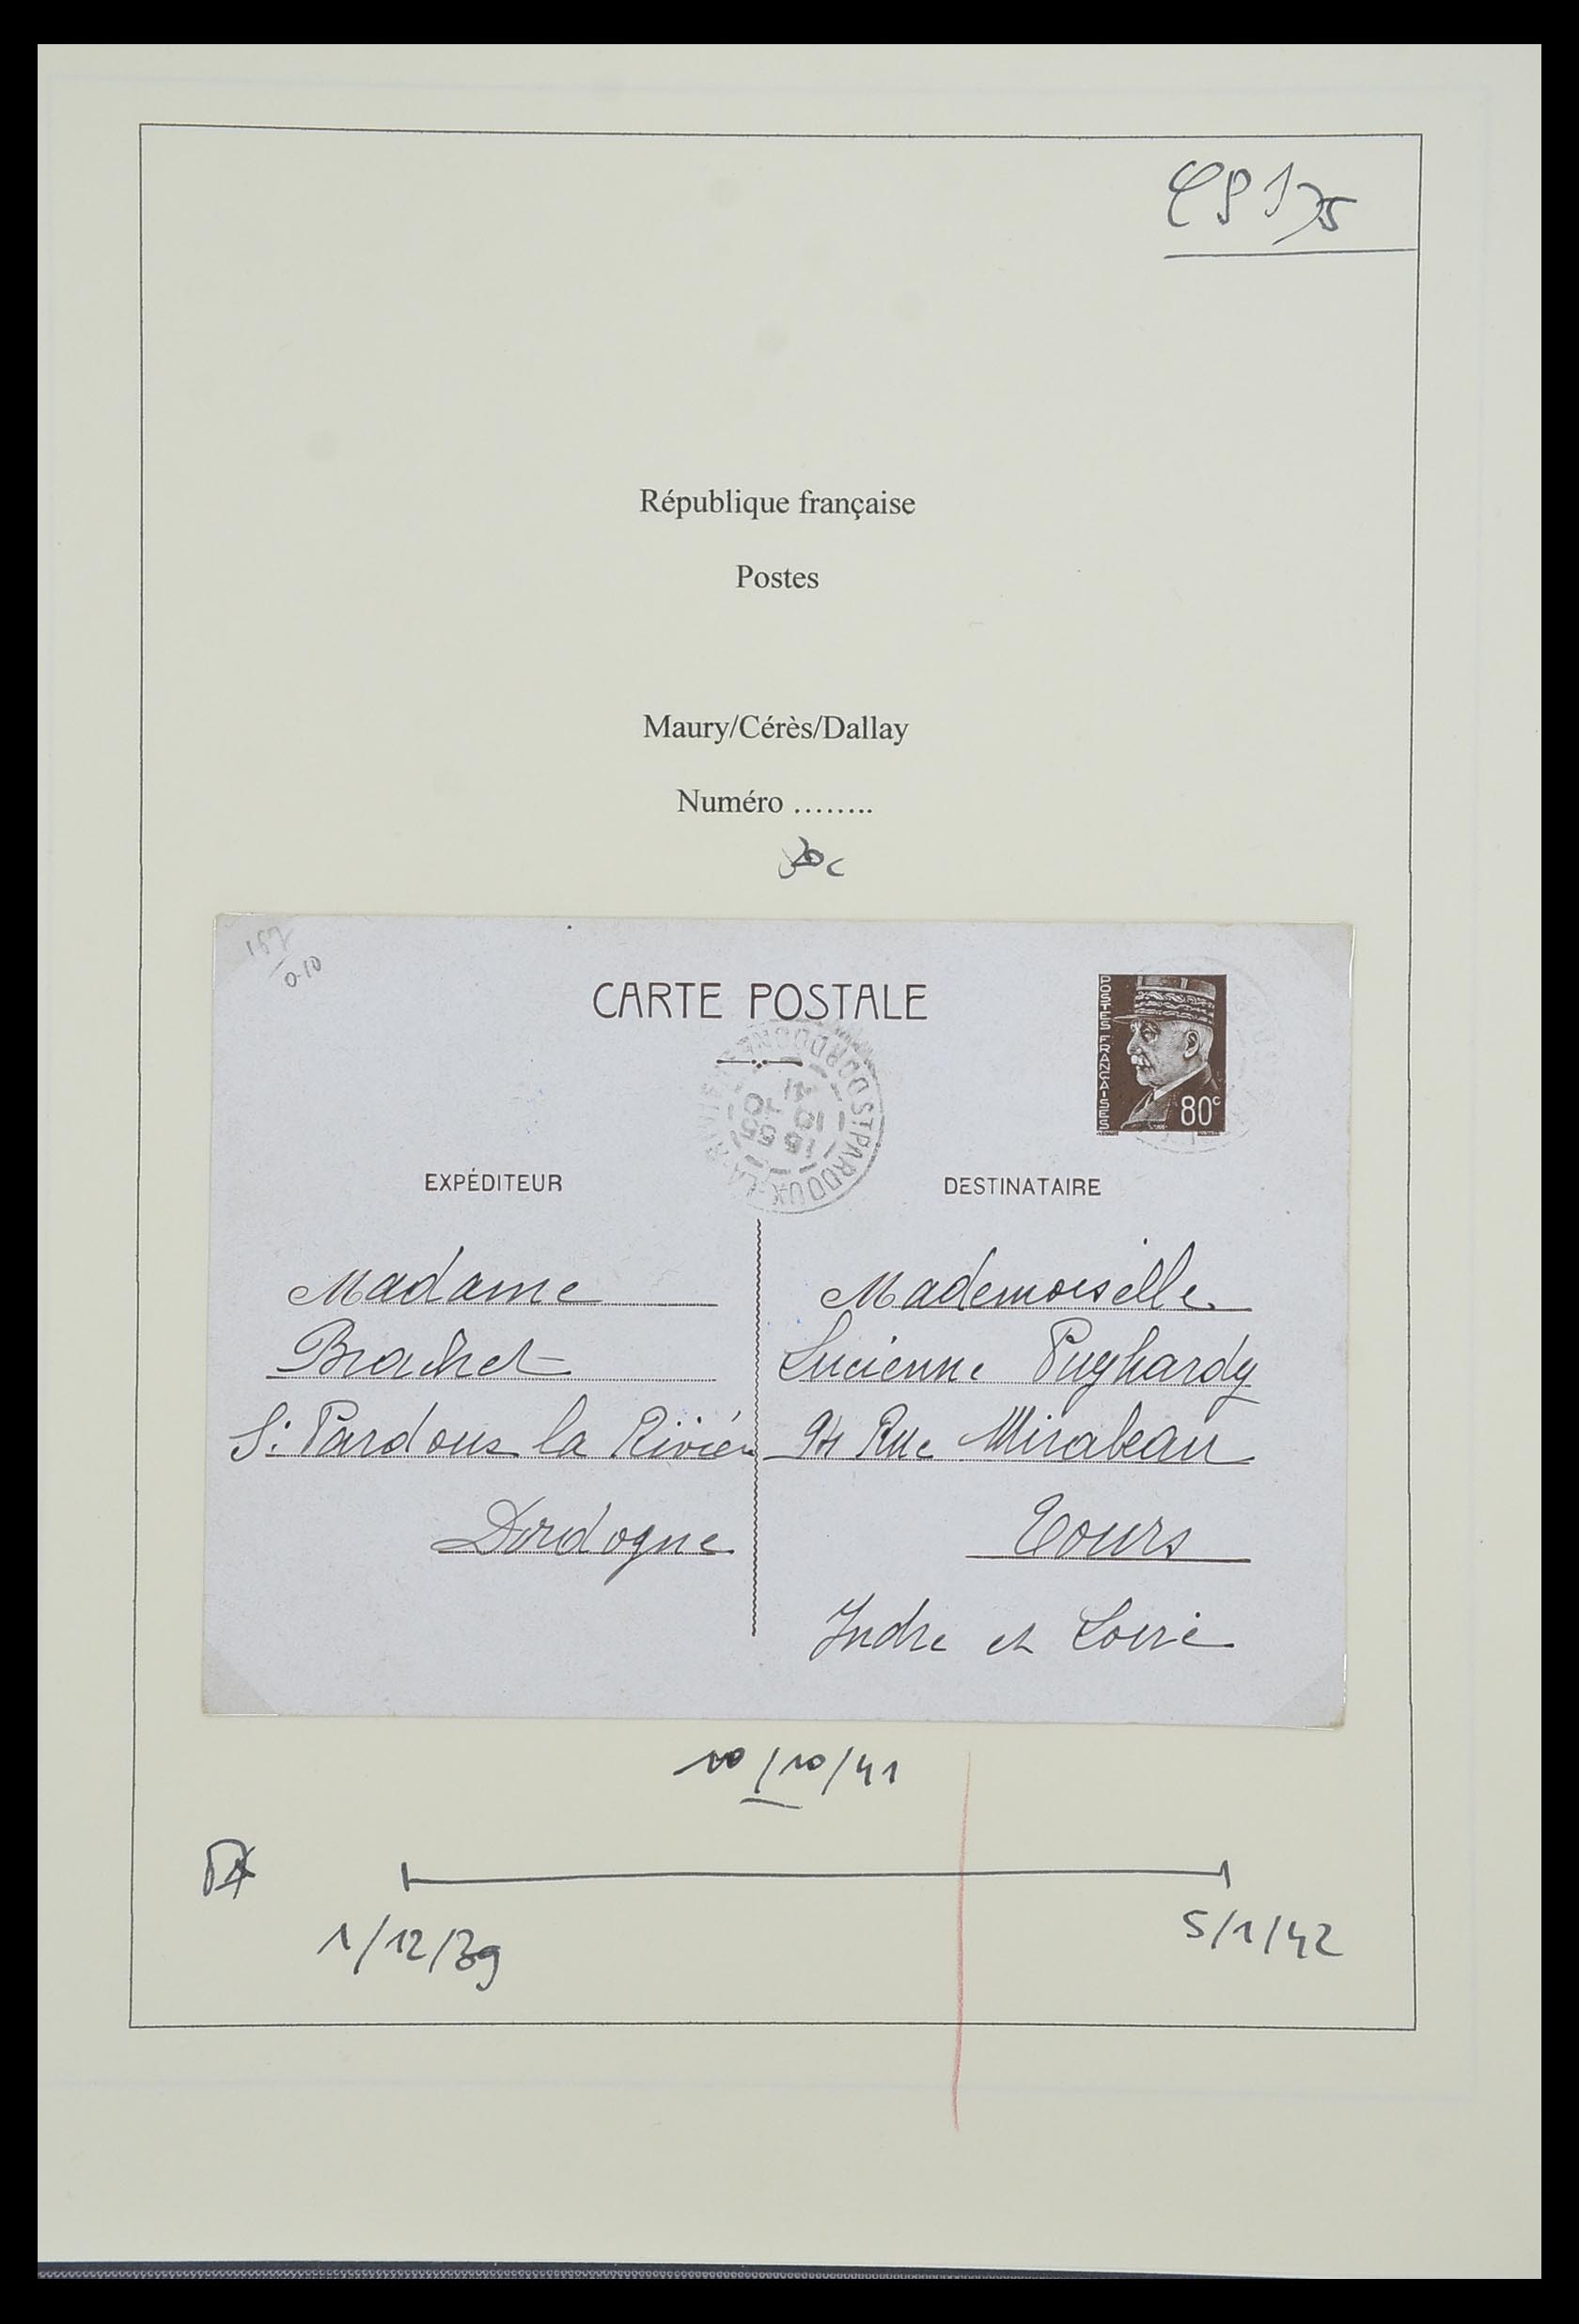 République française
Postes
Maury/Cérès/Dallay
Numéro ........
0.10
CARTE POSTALE
POSTES FRANÇAISES
80c
ST PARDOUX-LA-RIVIÈRE DORDOGNE
EXPÉDITEUR
DESTINATAIRE
Madame
Brachet
St Pardoux la Rivière
Dordogne
Mademoiselle
Lucienne Puyhardy
94 Rue Mirabeau
Tours
Indre et Loire
10/10/41
1/12/39
5/1/42